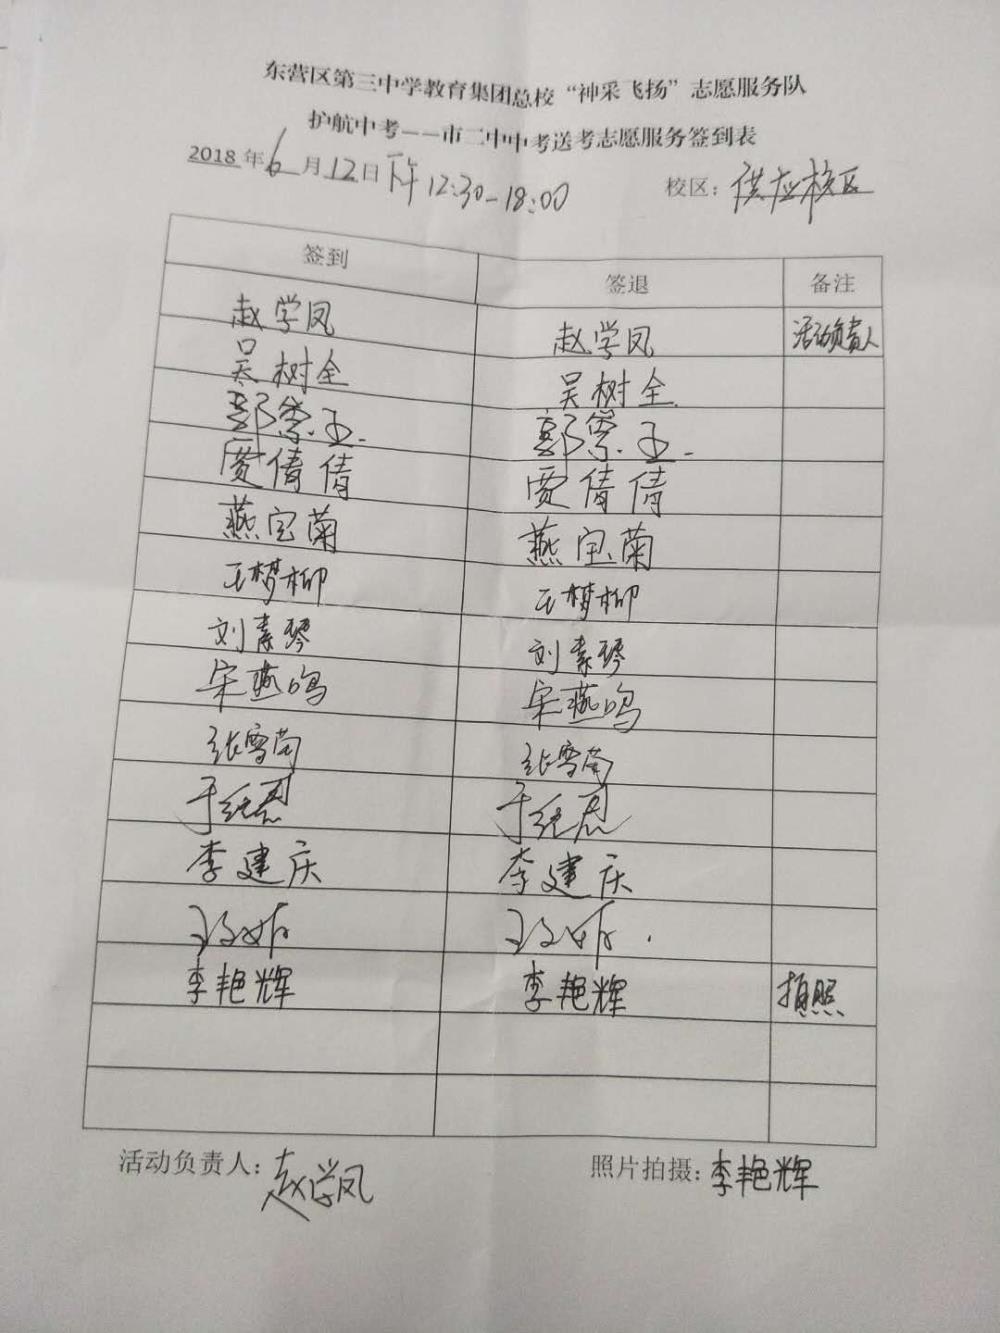 东营区第三中学教育集团总校“神采飞扬”志愿服务队
护航中考——市二中中考送考志愿服务签到表
2018年6月12日下午12:30-18:00 校区：供应校区
签到 签退 备注
赵学凤 赵学凤 活动负责人
吴树全 吴树全
郭崇玉 郭崇玉
贾倩倩 贾倩倩
燕宝菊 燕宝菊
王梦柳 王梦柳
刘素琴 刘素琴
宋燕鸣 宋燕鸣
张雪菊 张雪菊
于继 于继
李建庆 李建庆
李艳辉 李艳辉 拍照
活动负责人：赵学凤 照片拍摄：李艳辉